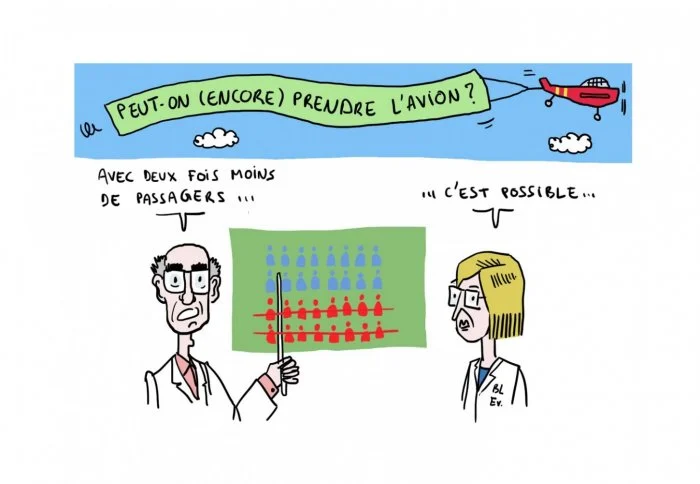 PEUT-ON (ENCORE) PRENDRE L'AVION?
AVEC DEUX FOIS MOINS
DE PASSAGERS ...
... C'EST POSSIBLE...
BL
Ev.